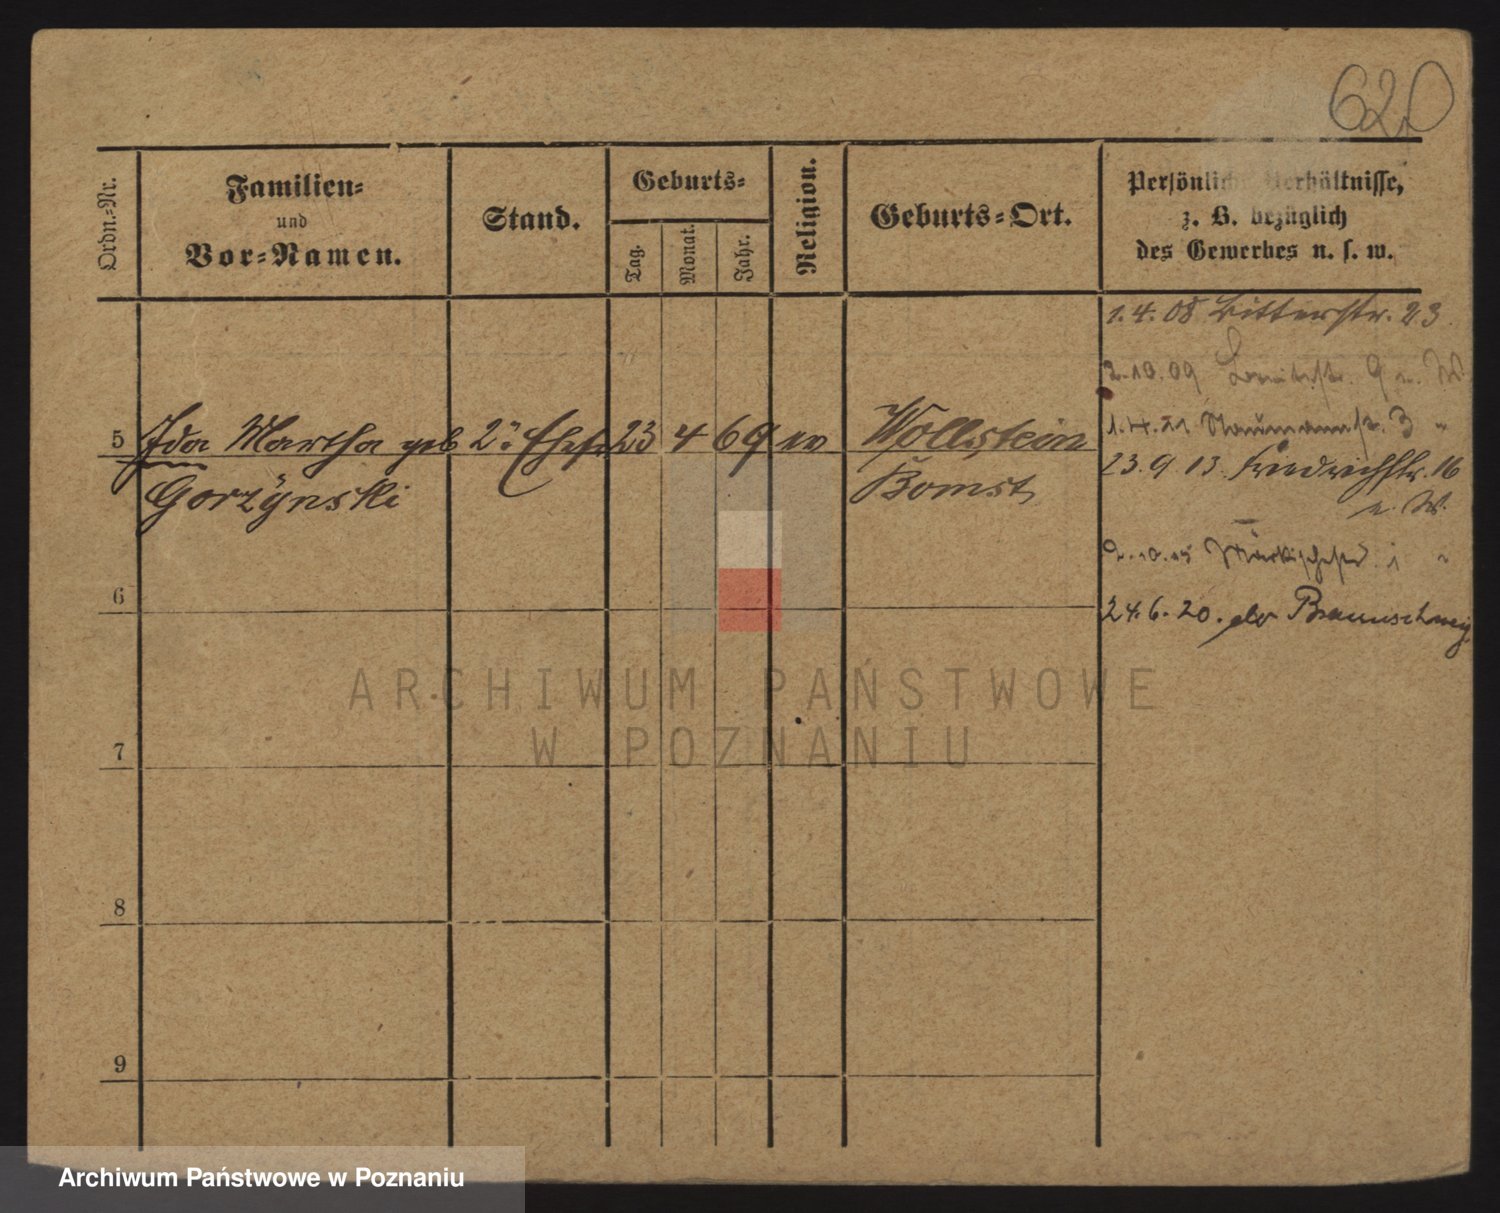 620
Ordn.-Nr.
Familien-
und
Vor-Namen.
Stand.
Geburts-
Tag.
Monat.
Jahr.
Religion.
Geburts-Ort.
Persönliche Verhältnisse,
z. B. bezüglich
des Gewerbes u. s. w.
1.4.08 Bitterstr. 23
2.10.09 9 u. W.
1.4.11 Naumannstr. 3 "
5 Ida Martha geb 2te Ehefr 23 4 69 ev Wollstein
23.9.13. Friedrichstr. 16
Gorzÿnski Bomst
u. W.
2.10.15 Märkischestr. 1 "
6
24.6.20. Braunschweig
ARCHIWUM PAŃSTWOWE
W POZNANIU
7
8
9
Archiwum Państwowe w Poznaniu